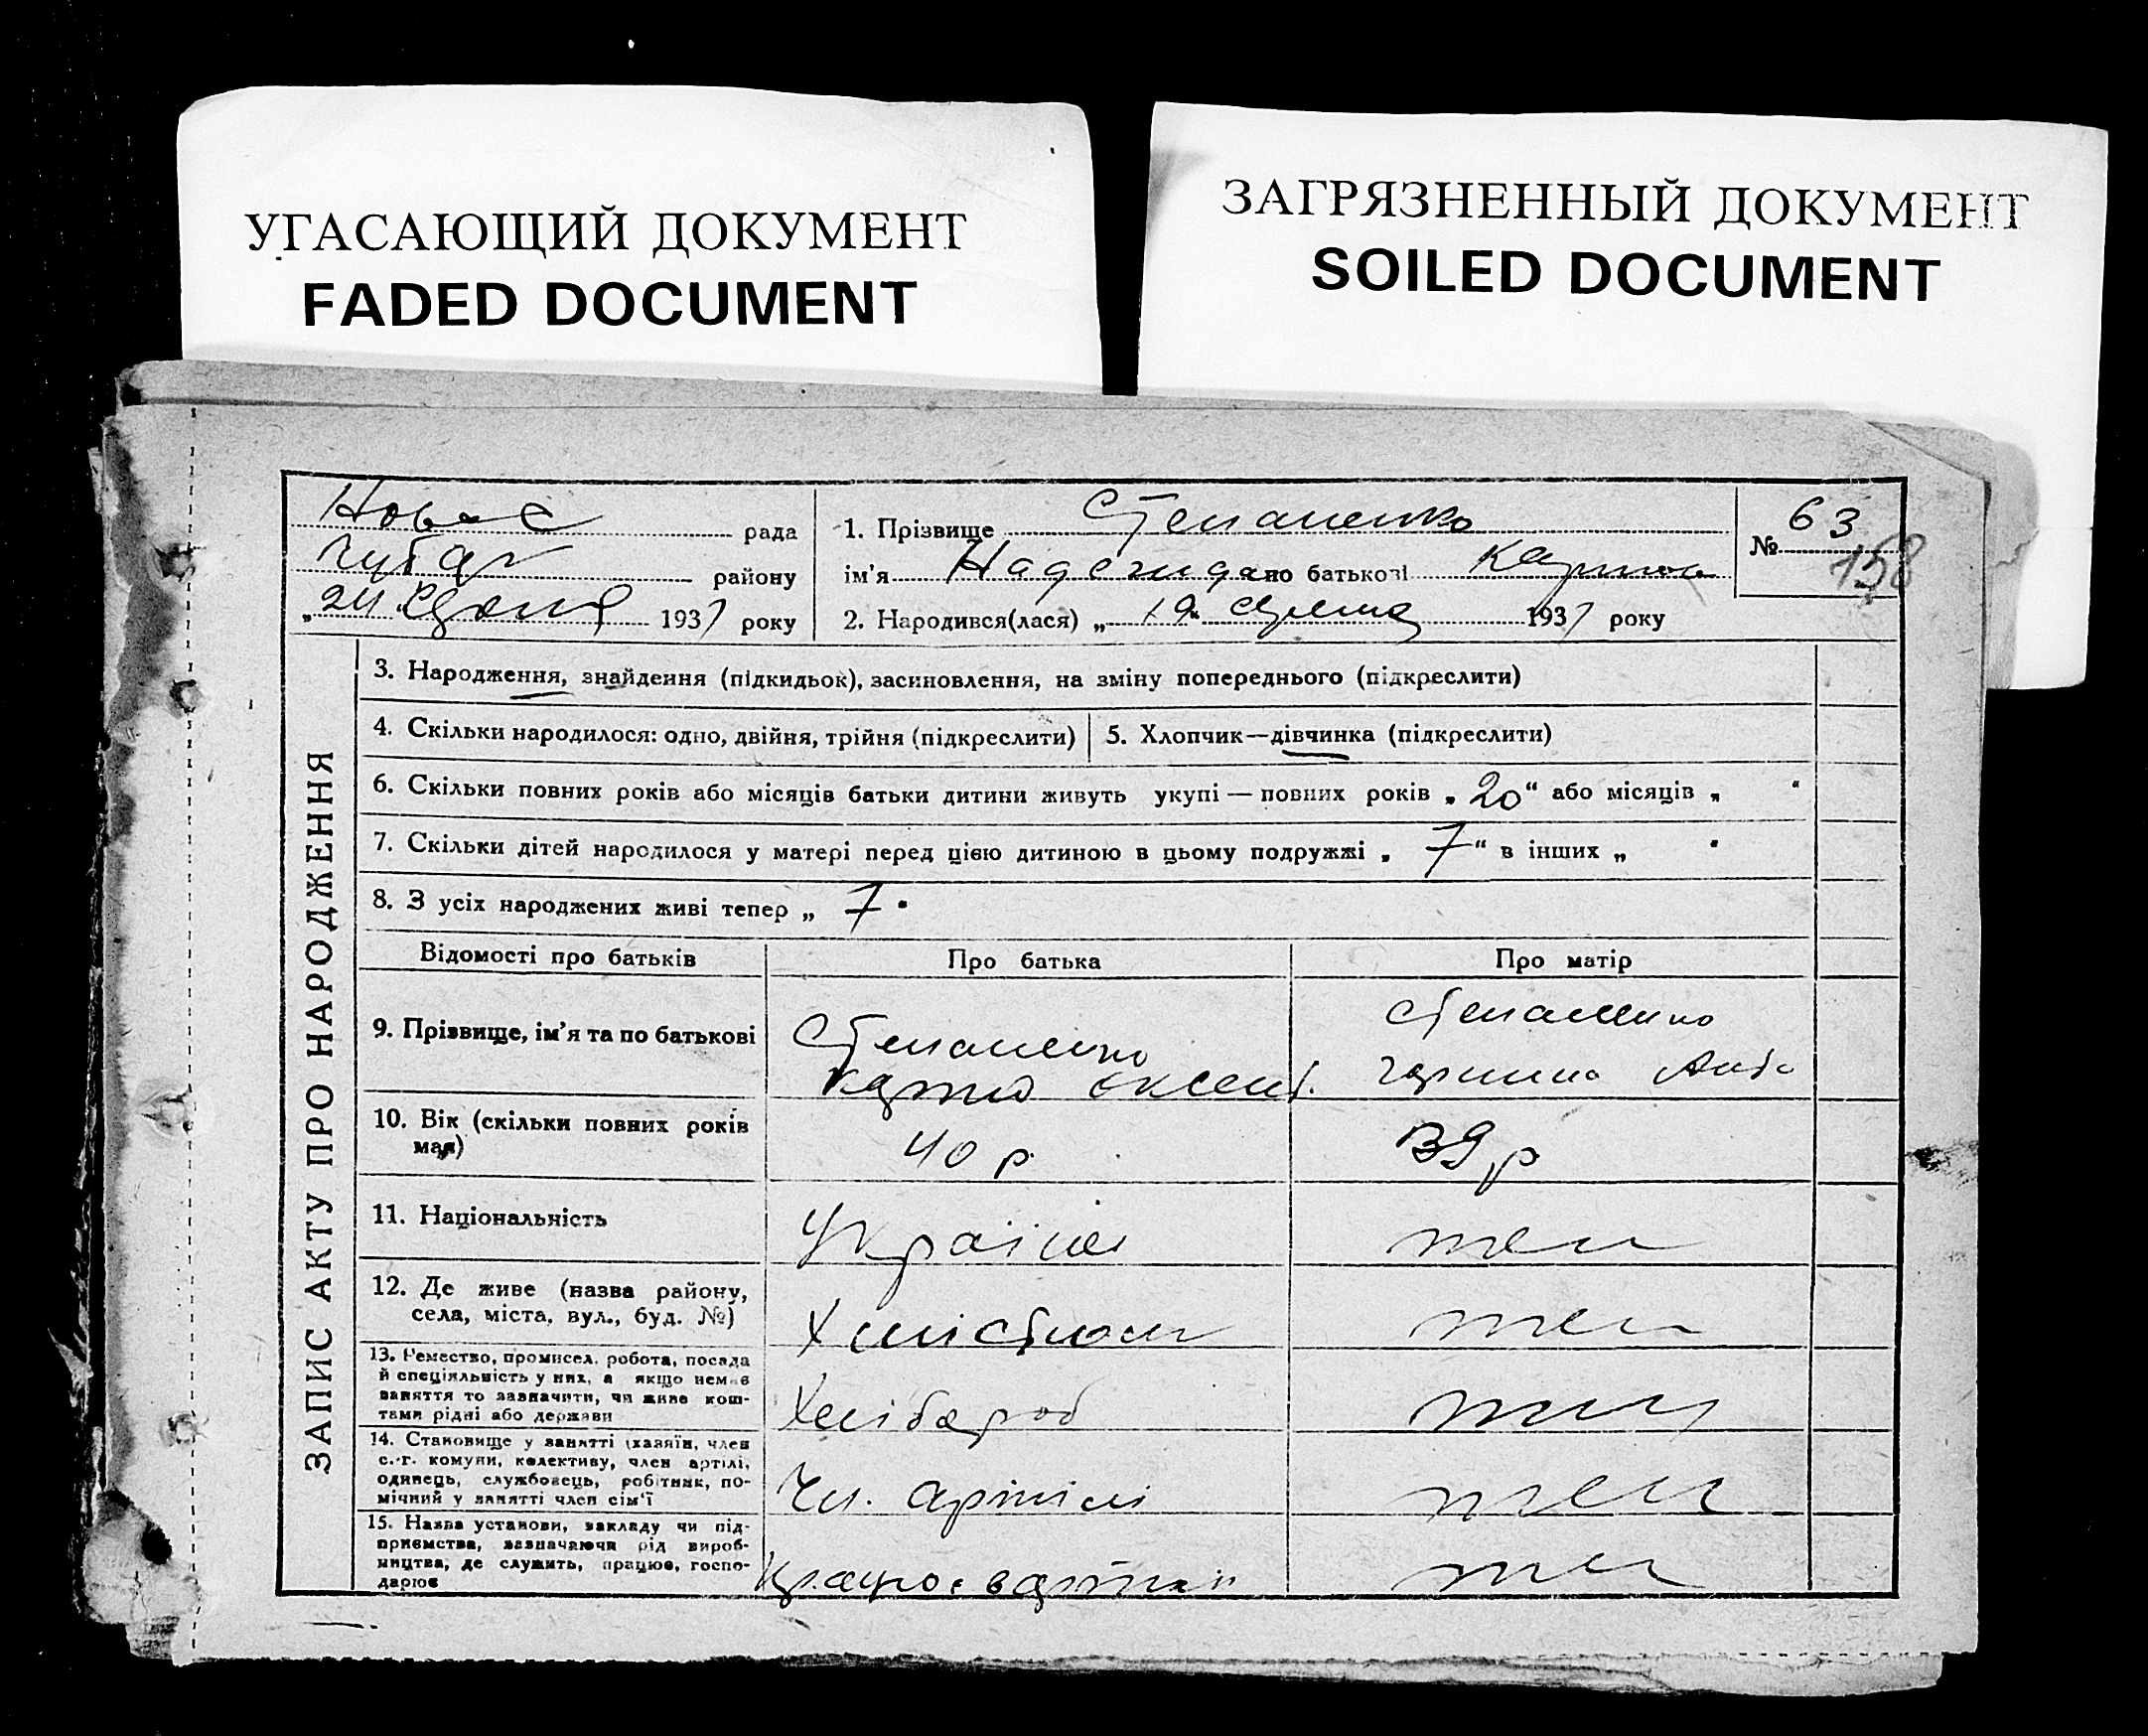 УГАСАЮЩИЙ ДОКУМЕНТ
FADED DOCUMENT
ЗАГРЯЗНЕННЫЙ ДОКУМЕНТ
SOILED DOCUMENT
рада
району
„ 24 1937 року
1. Прізвище Степаненко
ім'я Надежида по батькові
2. Народився(лася) „ 19 “ 1937 року
№ 63
158
ЗАПИС АКТУ ПРО НАРОДЖЕННЯ
3. Народження, знайдення (підкидьок), засиновлення, на зміну попереднього (підкреслити)
4. Скільки народилося: одно, двійня, трійня (підкреслити)
5. Хлопчик—дівчинка (підкреслити)
6. Скільки повних років або місяців батьки дитини живуть укупі — повних років „ 20 “ або місяців „ “
7. Скільки дітей народилося у матері перед цією дитиною в цьому подружжі „ 7 “ в інших „ “
8. З усіх народжених живі тепер „ 7 “
Відомості про батьків
Про батька
Про матір
9. Прізвище, ім'я та по батькові
Степаненко
Оксент.
Степаненко
10. Вік (скільки повних років
мая)
40 р
39 р
11. Національність
Україн
теж
12. Де живе (назва району,
села, міста, вул., буд. №)
теж
13. Ремество, промисел, робота, посада
й спеціяльність у них, а якщо немає
заняття то зазначити, чи живе кош-
тами рідні або держави
Хлібороб
14. Становище у занятті (хазяїн, член
с.-г. комуни, колективу, член артілі,
одинець, службовець, робітник, по-
мічний у занятті член сім'ї
Чл. артілі
теж
15. Назва установи, закладу чи під-
приємства, зазначаючи рід вироб-
ництва, де служить, працює, госпо-
дарює
теж